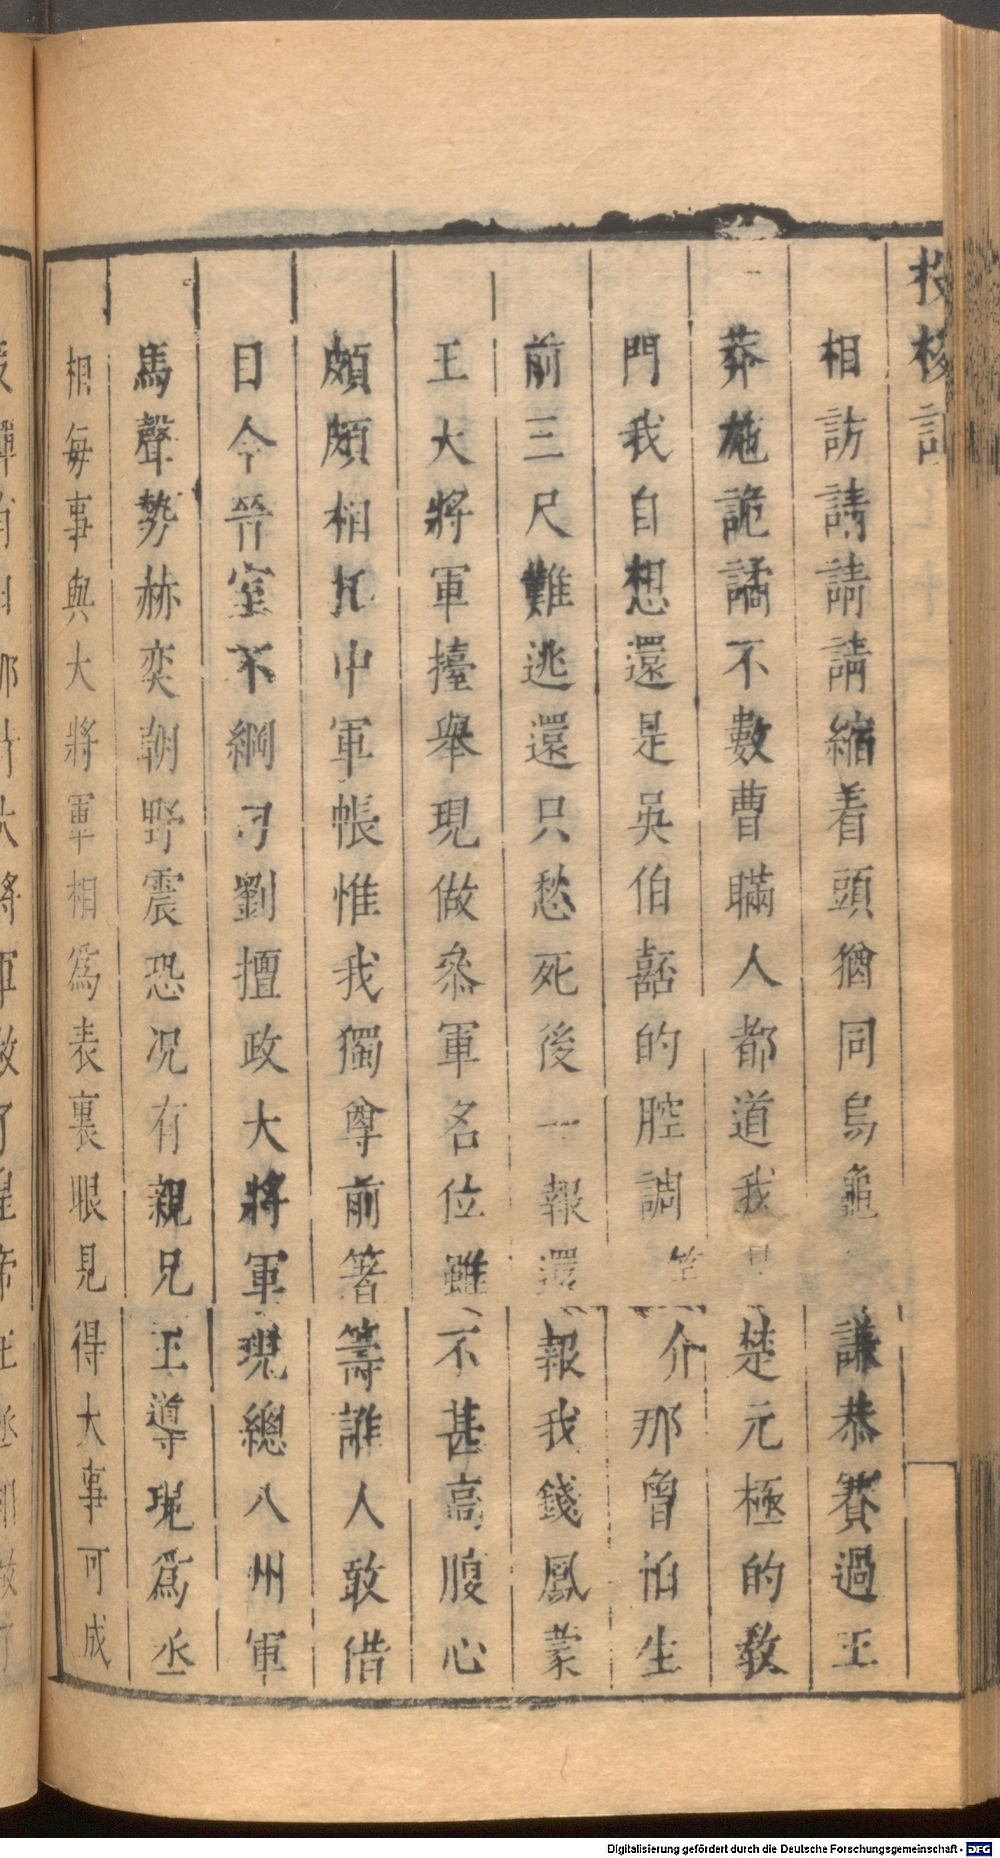 投梭記
相訪請請請縮着頭猶同烏龜 謙恭賽過王
莽施詭譎不數曹瞞人都道我是楚元極的敎
門我自想還是吳伯嚭的腔調 笑介 那曾怕生
前三尺難逃還只愁死後一報還報我錢鳳蒙
王大將軍擡舉現做叅軍名位雖不甚高腹心
頗頗相托中軍帳惟我獨尊前箸籌誰人敢借
目今晉室不綱刁劉擅政大將軍現總八州軍
馬聲勢赫奕朝野震恐况有親兄王導現爲丞
相每事與大將軍相爲表裏眼見得大事可成
Digitalisierung gefördert durch die Deutsche Forschungsgemeinschaft - DFG